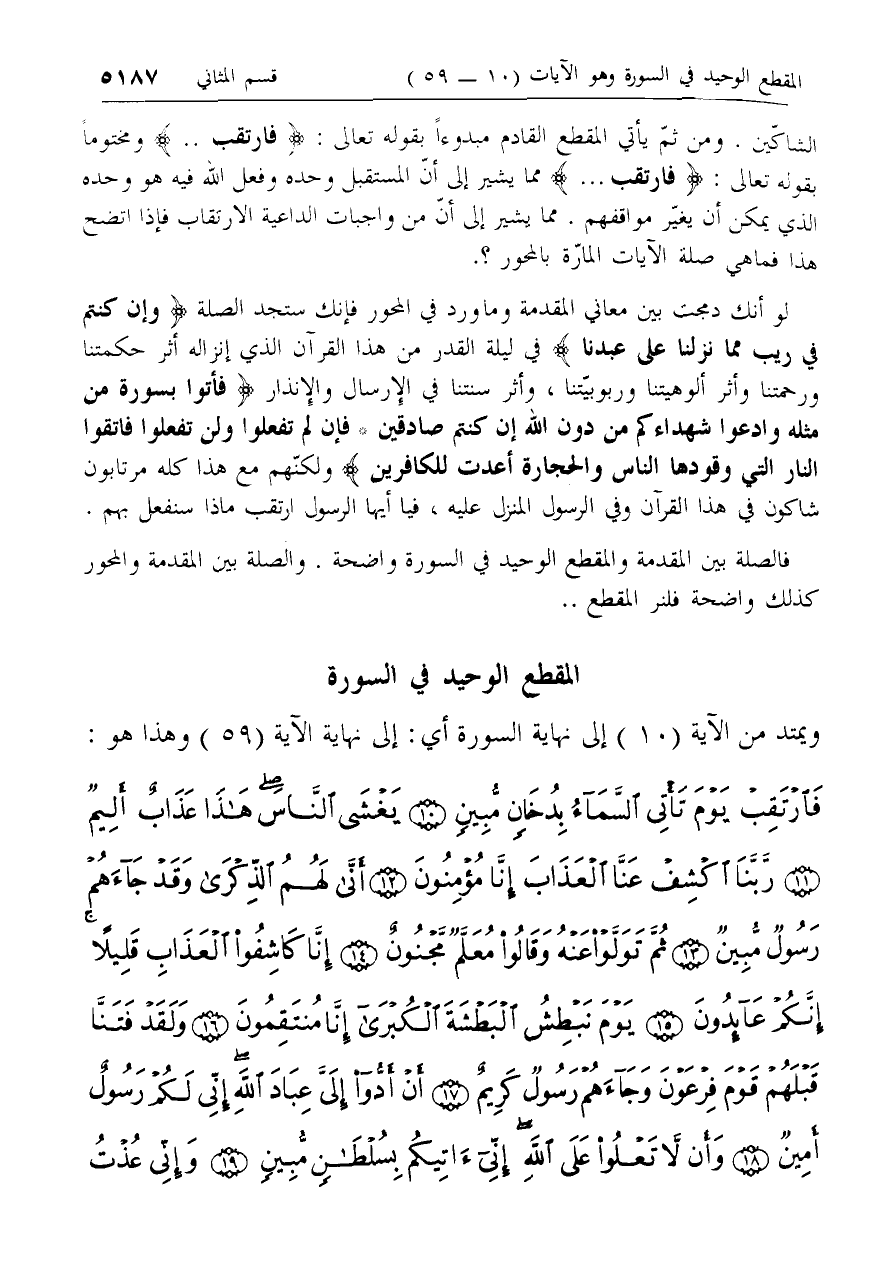 المقطع الوحيد في السورة وهو الآيات (١٠ ــ ٥٩) قسم المثاني ٥١٨٧
الشاكّين . ومن ثمّ يأتي المقطع القادم مبدوءاً بقوله تعالى : ﴿ فارتقب .. ﴾ ومختوماً
بقوله تعالى : ﴿ فارتقب ... ﴾ مما يشير إلى أنّ المستقبل وحده وفعل الله فيه هو وحده
الذي يمكن أن يغيّر مواقفهم . مما يشير إلى أنّ من واجبات الداعية الارتقاب فإذا اتضح
هذا فماهي صلة الآيات المارّة بالمحور ؟.
لو أنك دمجت بين معاني المقدمة وماورد في المحور فإنك ستجد الصلة ﴿ وإن كنتم
في ريب مما نزلنا على عبدنا ﴾ في ليلة القدر من هذا القرآن الذي إنزاله أثر حكمتنا
ورحمتنا وأثر ألوهيتنا وربوبيّتنا ، وأثر سنتنا في الإرسال والإنذار ﴿ فأتوا بسورة من
مثله وادعوا شهداءكم من دون الله إن كنتم صادقين * فإن لم تفعلوا ولن تفعلوا فاتقوا
النار التي وقودها الناس والحجارة أعدت للكافرين ﴾ ولكنّهم مع هذا كله مرتابون
شاكون في هذا القرآن وفي الرسول المنزل عليه ، فيا أيها الرسول ارتقب ماذا سنفعل بهم .
فالصلة بين المقدمة والمقطع الوحيد في السورة واضحة . والصلة بين المقدمة والمحور
كذلك واضحة فلنر المقطع ..
المقطع الوحيد في السورة
ويمتد من الآية (١٠) إلى نهاية السورة أي: إلى نهاية الآية (٥٩) وهذا هو :
فَٱرْتَقِبْ يَوْمَ تَأْتِى ٱلسَّمَآءُ بِدُخَانٍ مُّبِينٍ ۝١٠ يَغْشَى ٱلنَّاسَ ۖ هَٰذَا عَذَابٌ أَلِيمٌ
۝١١ رَّبَّنَا ٱكْشِفْ عَنَّا ٱلْعَذَابَ إِنَّا مُؤْمِنُونَ ۝١٢ أَنَّىٰ لَهُمُ ٱلذِّكْرَىٰ وَقَدْ جَآءَهُمْ
رَسُولٌ مُّبِينٌ ۝١٣ ثُمَّ تَوَلَّوْا۟ عَنْهُ وَقَالُوا۟ مُعَلَّمٌ مَّجْنُونٌ ۝١٤ إِنَّا كَاشِفُوا۟ ٱلْعَذَابِ قَلِيلًا ۚ
إِنَّكُمْ عَآئِدُونَ ۝١٥ يَوْمَ نَبْطِشُ ٱلْبَطْشَةَ ٱلْكُبْرَىٰٓ إِنَّا مُنتَقِمُونَ ۝١٦ وَلَقَدْ فَتَنَّا
قَبْلَهُمْ قَوْمَ فِرْعَوْنَ وَجَآءَهُمْ رَسُولٌ كَرِيمٌ ۝١٧ أَنْ أَدُّوٓا۟ إِلَىَّ عِبَادَ ٱللَّهِ ۖ إِنِّى لَكُمْ رَسُولٌ
أَمِينٌ ۝١٨ وَأَن لَّا تَعْلُوا۟ عَلَى ٱللَّهِ ۖ إِنِّىٓ ءَاتِيكُم بِسُلْطَٰنٍ مُّبِينٍ ۝١٩ وَإِنِّى عُذْتُ